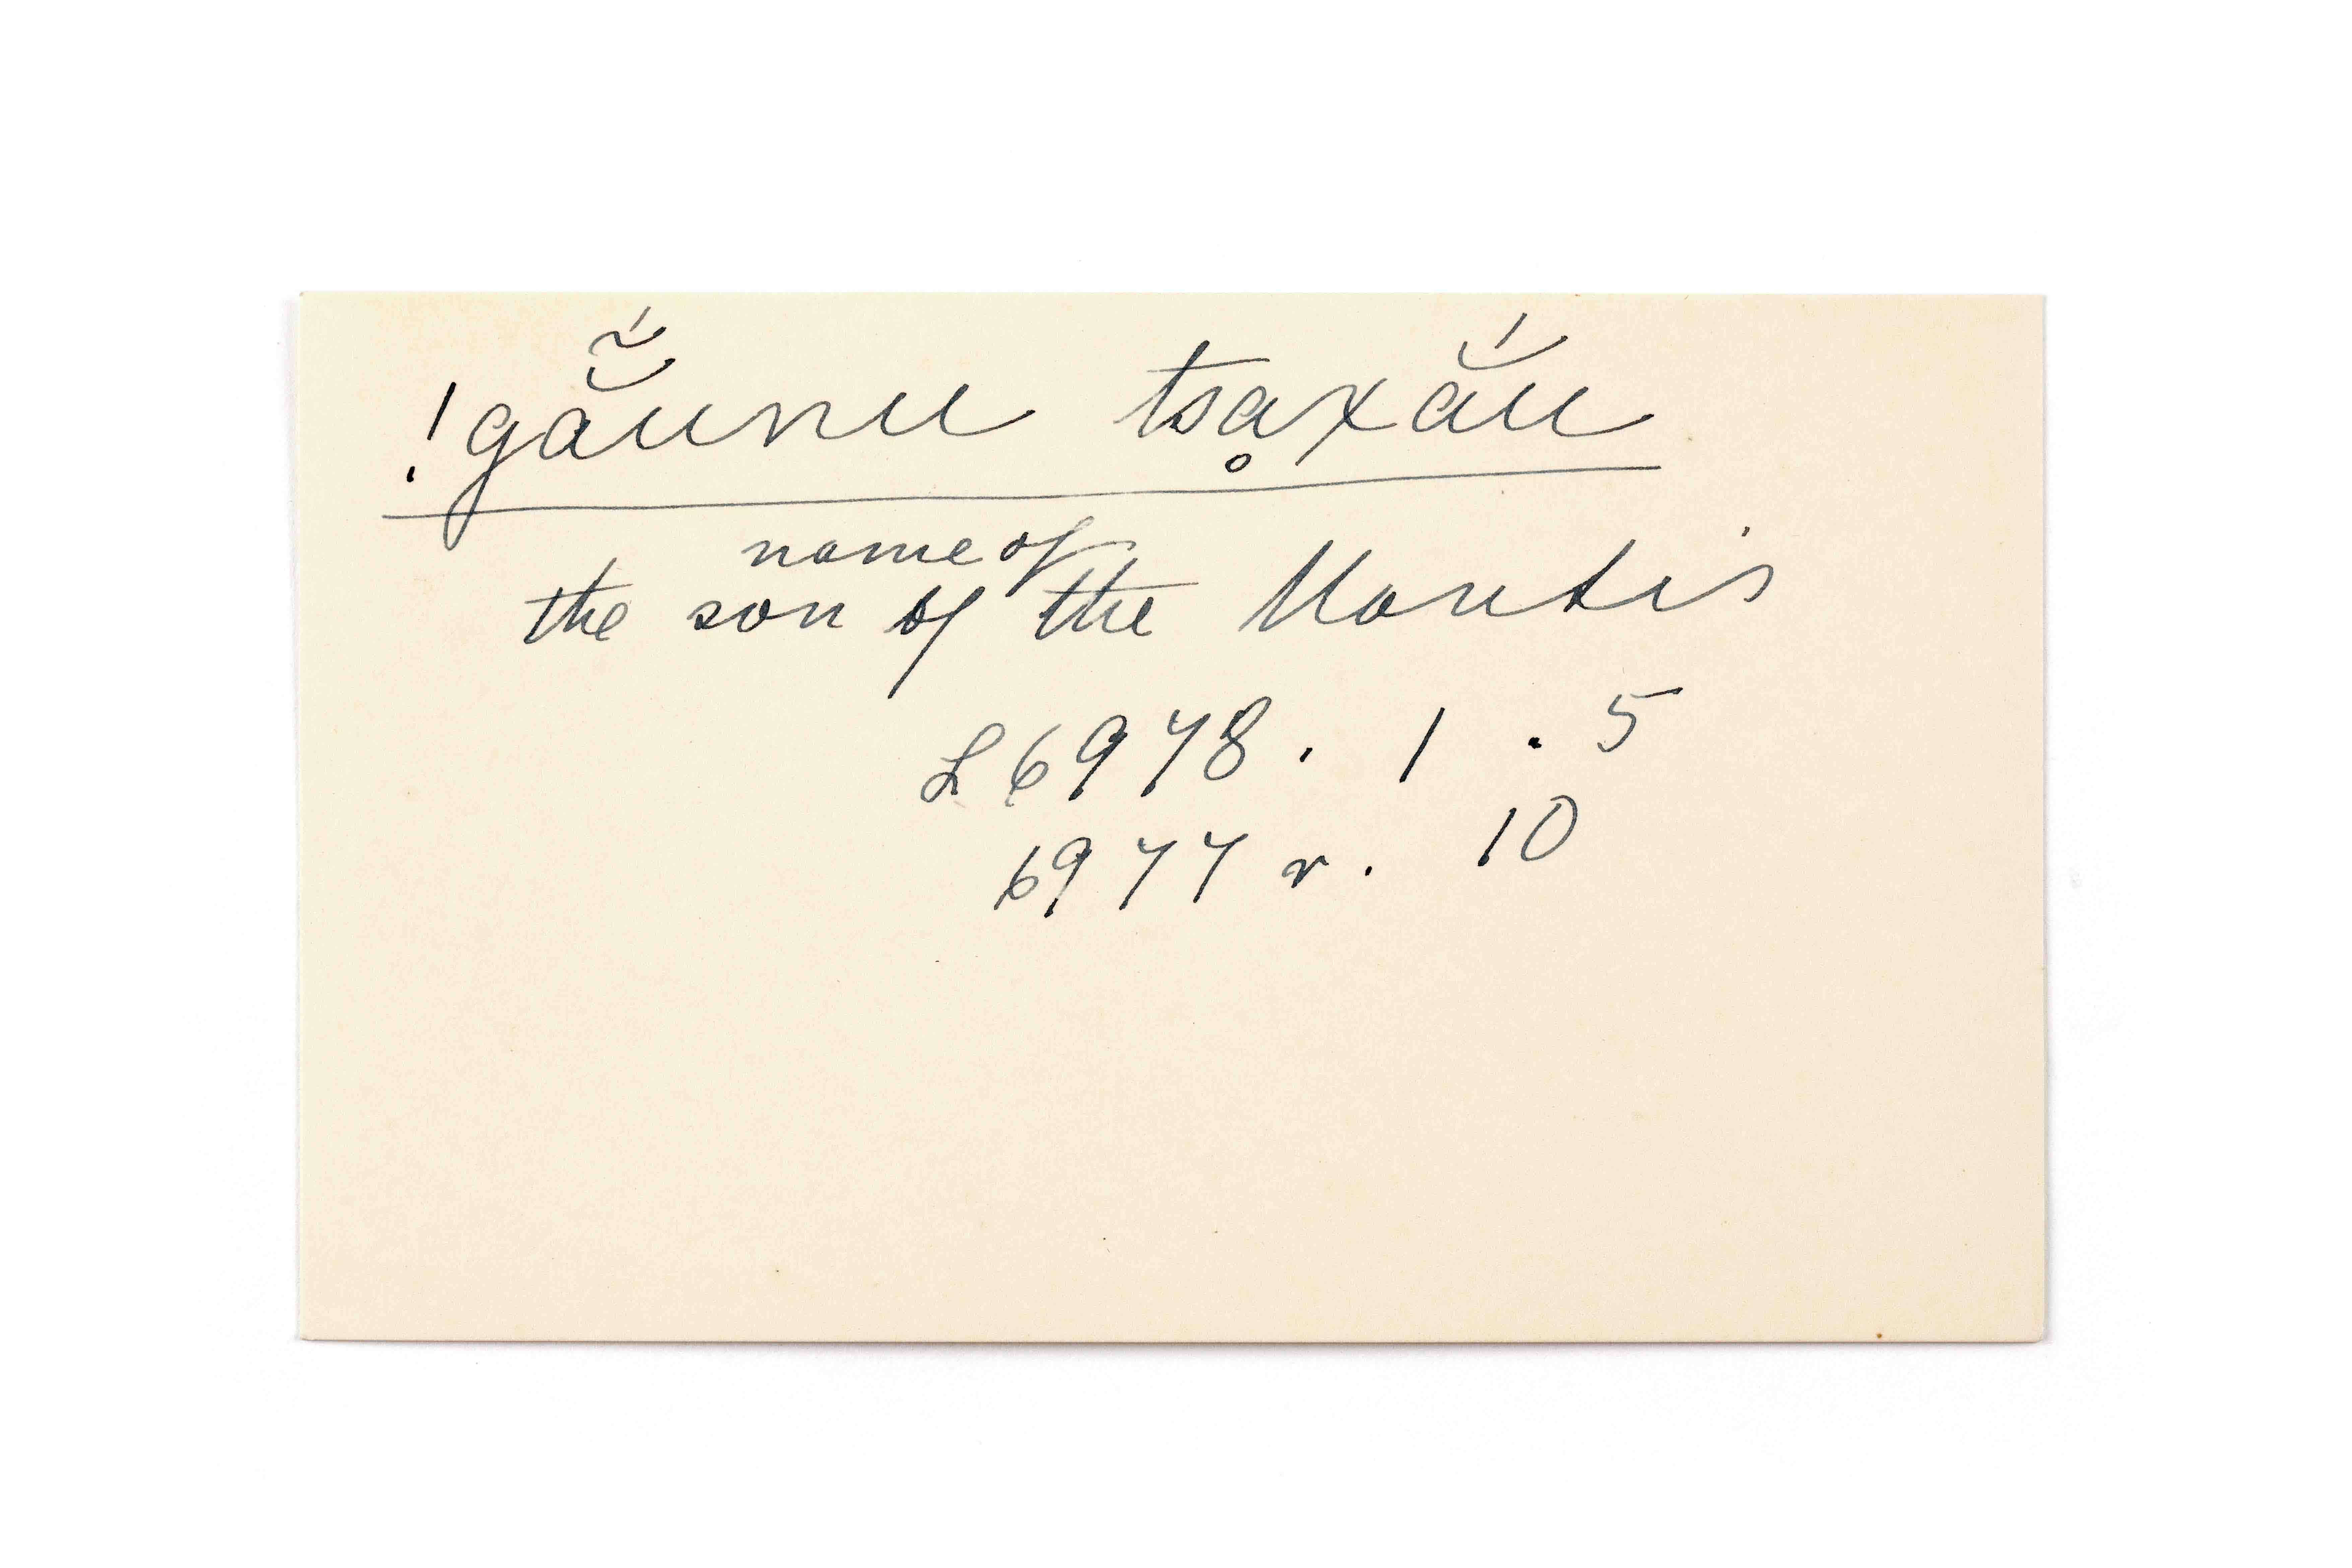 !gã̆́unu tsḁxắu
name of
the son of the Mantis
L 6978 . 1 . 5
6977 r. 10